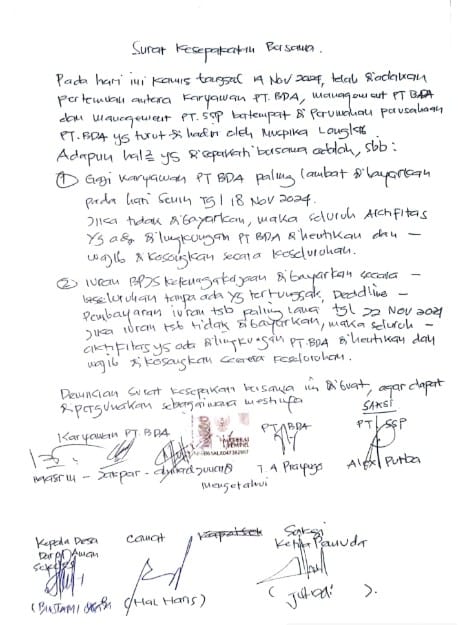 Surat Kesepakatan Bersama.
Pada hari ini Kamis tanggal 14 Nov 2024, telah diadakan
pertemuan antara Karyawan PT. BDA, Management PT BDA
dan Management PT. SSP bertempat di Perumahan perusahaan
PT. BDA yg turut dihadiri oleh Muspika
Adapun hal2 yg disepakati bersama adalah, sbb:
① Gaji Karyawan PT BDA paling lambat dibayarkan
pada hari Senin tgl 18 Nov 2024.
Jika tidak dibayarkan, maka seluruh Aktifitas
yg ada dilingkungan PT BDA dihentikan dan –
wajib dikosongkan secara keseluruhan.
② iuran BPJS Ketenagakerjaan dibayarkan secara –
keseluruhan tanpa ada yg tertunggak, Deadline –
Pembayaran iuran tsb paling lama tgl 22 Nov 2024
Jika iuran tsb tidak dibayarkan, maka seluruh –
aktifitas yg ada dilingkungan PT. BDA dihentikan dan
wajib dikosongkan secara keseluruhan.
Demikian Surat Kesepakatan bersama ini dibuat, agar dapat
dipergunakan sebagaimana mestinya
SAKSI
Karyawan PT BDA PT BDA PT SSP
Masrul – Jakpar – T.A Prayugo Alex Purba
Mengetahui
Kepala Desa Camat Kapolsek Saksi
Ketua Pemuda
( ) (Hal Hans) ( )